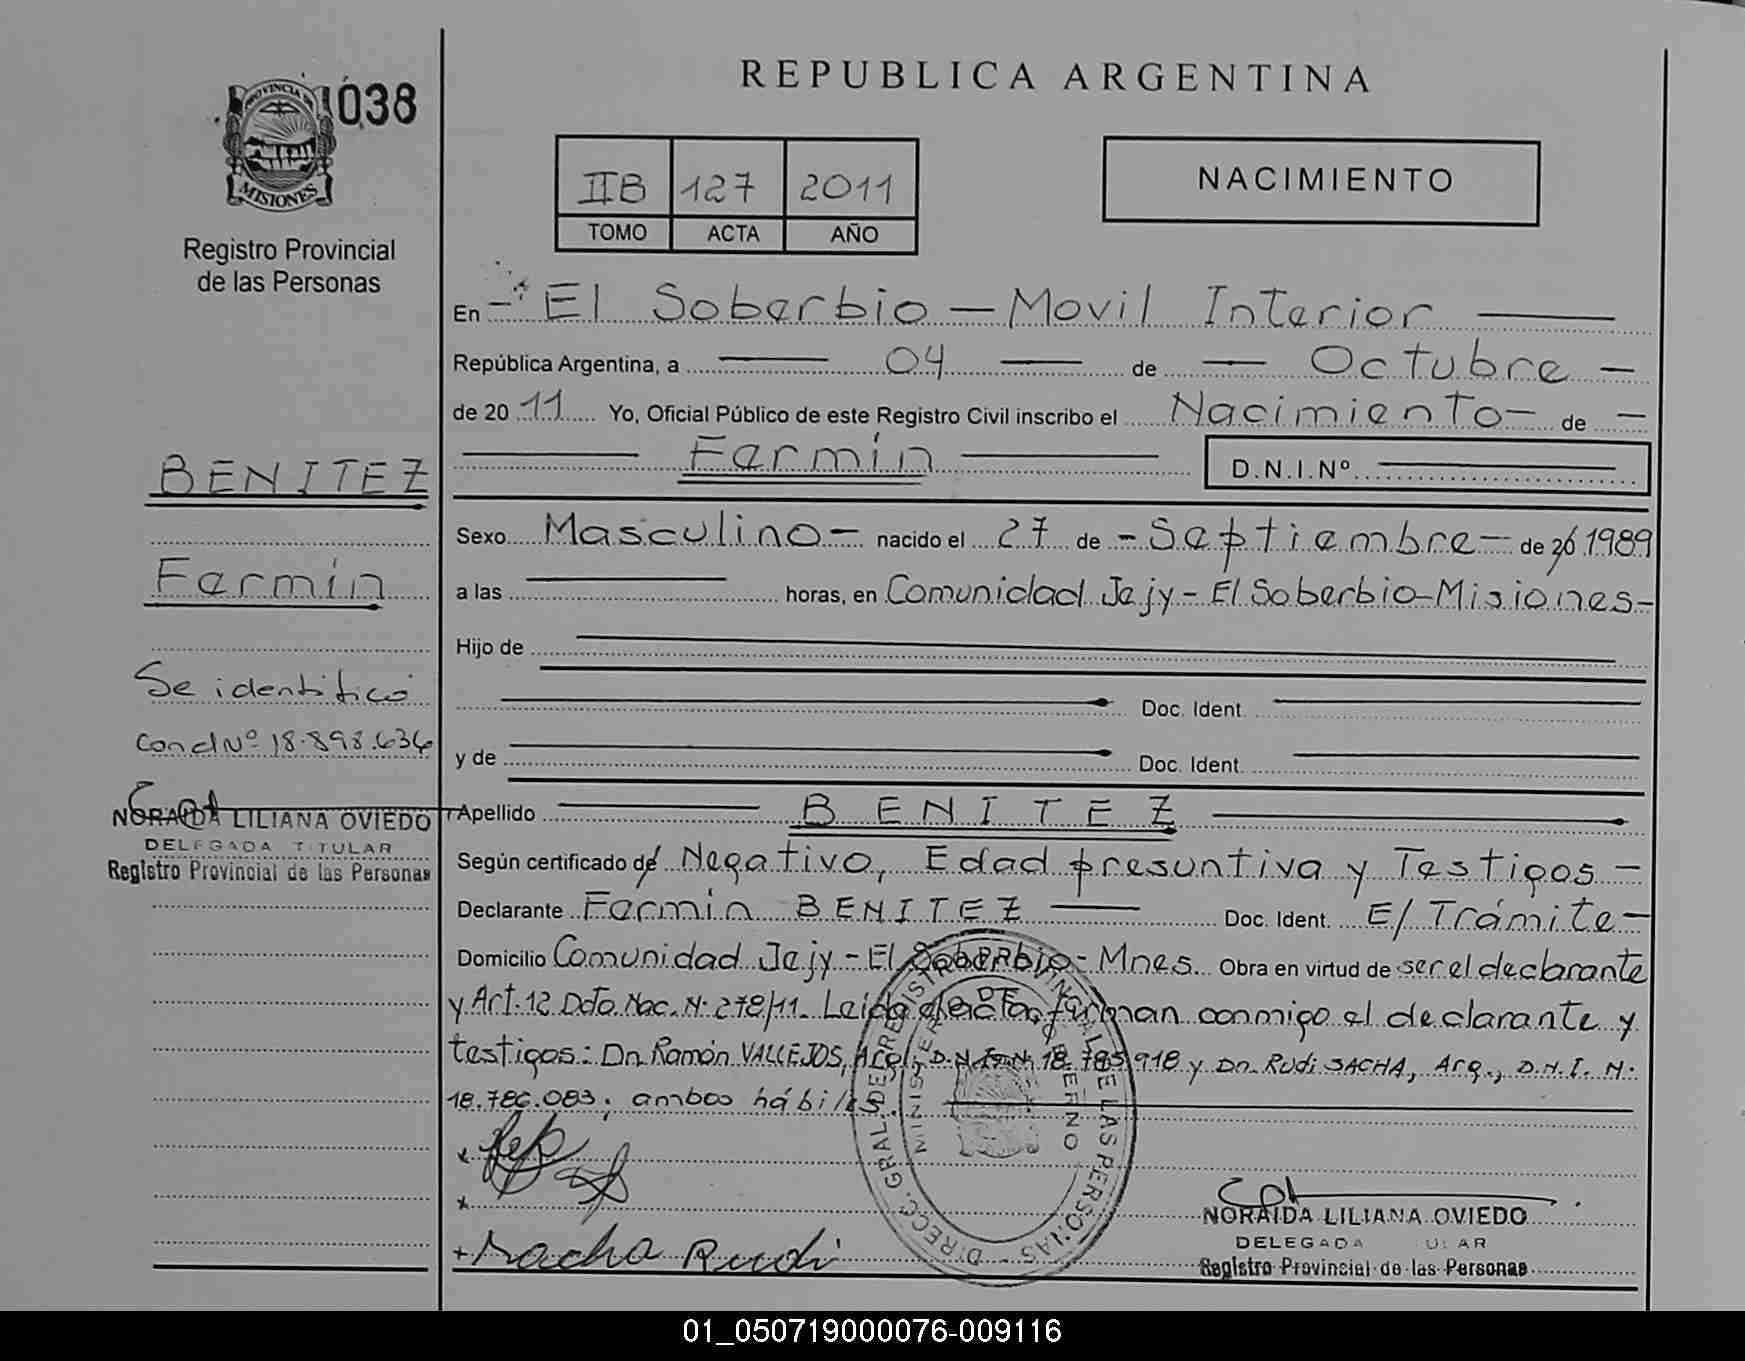 PROVINCIA DE
MISIONES
038
Registro Provincial
de las Personas
REPUBLICA ARGENTINA
IIB 127 2011
TOMO ACTA AÑO
NACIMIENTO
En El Soberbio — Movil Interior
República Argentina, a 04 de Octubre
de 20 11 Yo, Oficial Público de este Registro Civil inscribo el Nacimiento de
Fermín D.N.I.Nº
BENITEZ
Fermín
Se identificó
con dNº 18.898.636
NORAIDA LILIANA OVIEDO
DELEGADA TITULAR
Registro Provincial de las Personas
Sexo Masculino nacido el 27 de Septiembre de 20 1989
a las horas, en Comunidad Jejy - El Soberbio - Misiones
Hijo de
Doc. Ident.
y de Doc. Ident.
Apellido BENITEZ
Según certificado de Negativo, Edad presuntiva y Testigos
Declarante Fermín BENITEZ Doc. Ident. E/Trámite
Domicilio Comunidad Jejy - El Soberbio - Mnes. Obra en virtud de ser el declarante
y Art. 12 Dcto. Nac. N: 278/11. Leida el acta, firman conmigo el declarante y
testigos: Dn. Ramón VALLEJOS, Arg., D.N.I. N: 18.785.918 y Dn. Rudi SACHA, Arg., D.N.I. N:
18.786.083; ambos hábiles.
DIRECC. GRAL. DE REGISTRO PROVINCIAL DE LAS PERSONAS
MINISTERIO DE GOBIERNO
Sacha Rudi
NORAIDA LILIANA OVIEDO
DELEGADA TITULAR
Registro Provincial de las Personas
01_050719000076-009116